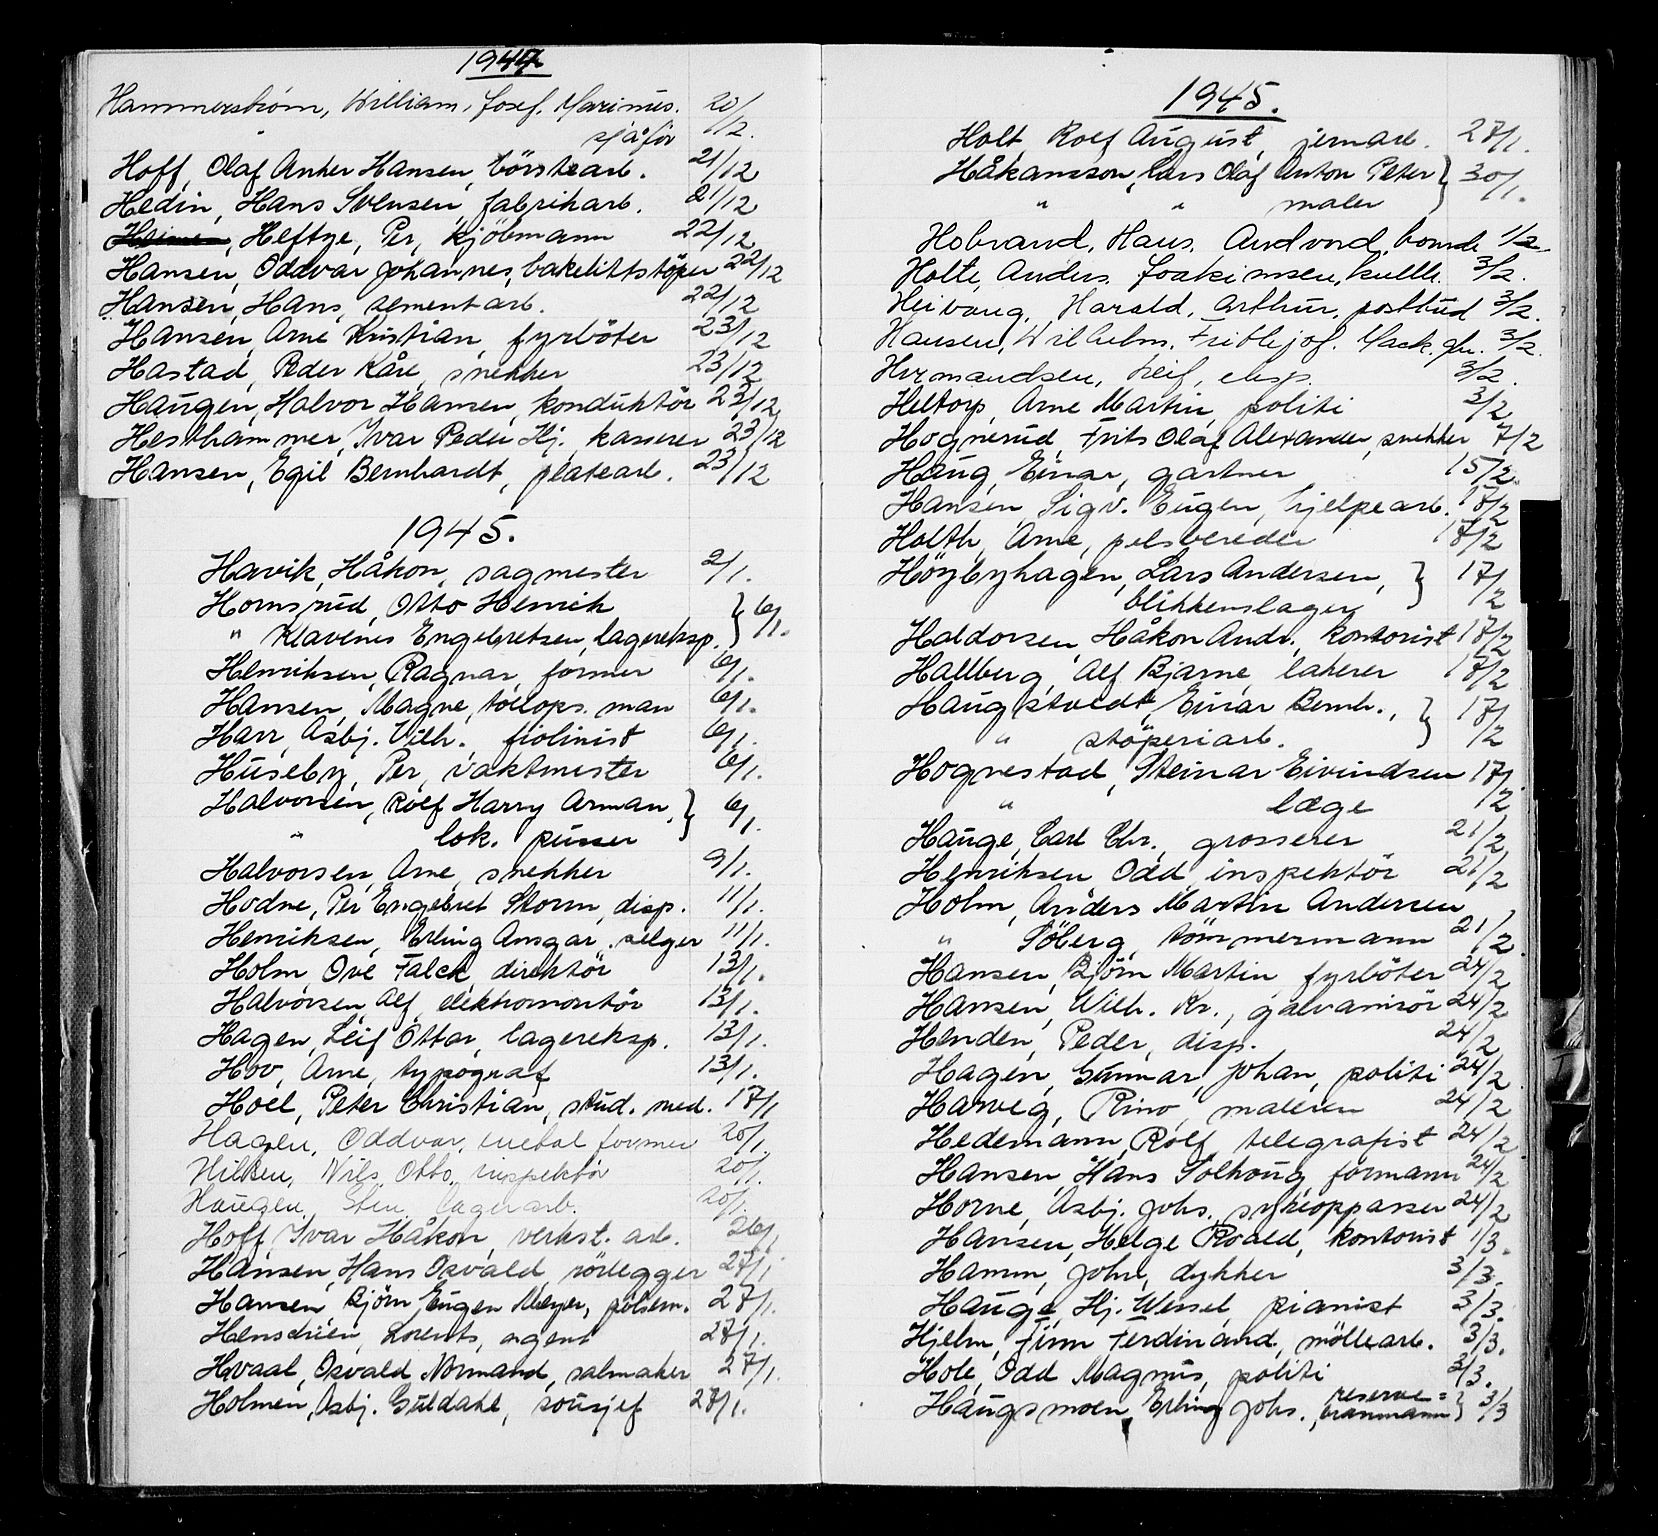 1944
Hammerstrøm, William, Josef, Marinus. 20/12.
" sjåför
Hoff, Olaf Anker Hansen, börstearb. 21/12
Hedin, Hans Svensen, fabrikarb. 21/12
Heftye, Per, kjöbmann 22/12
Hansen, Oddvar Johannes, bakelittstöper 22/12
Hansen, Hans, sementarb. 22/12
Hansen, Arne Kristian, fyrböter 23/12
Hastad, Peder Kåre, snekker 23/12
Haugen, Halvor Hansen, konduktör 23/12
Hesthammer, Ivar Peder Hj. kasserer 23/12
Hansen, Egil Bernhardt, platearb. 23/12
1945.
Havik, Håkon, sagmester 2/1.
Hornsrud, Otto Henrik } 6/1.
" Klavenes Engebretsen, lagereksp.
Henriksen, Ragnar, former 6/1.
Hansen, Magne, tollops. man 6/1.
Harr, Asbj. Vilh., fiolinist 6/1.
Huseby, Per, vaktmester 6/1.
Halvorsen, Rolf Harry Arman, } 6/1.
" lok. pusser
Halvorsen, Arne, snekker 9/1.
Hodne, Per Engebret Storm, disp. 11/1.
Henriksen, Erling Ansgar, selger 11/1.
Holm, Ove Falck, direktör 13/1.
Halvorsen, Alf, elektromontör 13/1.
Hagen, Leif Ottar, lagereksp. 13/1.
Hov, Arne, typograf 13/1.
Hoel, Peter Christian, stud. med. 17/1
Hagen, Oddvar, metal former 20/1
Hilken, Nils Otto, inspektör 20/1.
Haugen, Sten, lagerarb. 20/1
Hoff, Ivar Håkon, verkst. arb. 26/1
Hansen, Hans Osvald, rörlegger 27/1
Hansen, Björn Eugen Meyer, 27/1.
Lorents, agent 27/1.
Hvaal, Osvald Normand, salmaker 27/1.
Holmen, Asbj. Guldahl, sousjef 27/1.
1945.
Holt, Rolf August, jernarb. 27/1.
Håkansson, Lars Olaf Anton Peter } 30/1.
" " maler
Hobrand, Hans, Andvord, bonde 1/2
Holte, Anders, Joakimsen, 3/2.
Heivang, Harald, Arthur, postbud 3/2.
Hansen, Wilhelm, Frithjof. 3/2.
Hermandsen, Leif, eksp. 3/2.
Heltorp, Arne Martin, politi 3/2
Hognerud, Frits Olaf Alexander, snekker 7/2
Haug, Einar, gartner 15/2.
Hansen, Sigv. Eugen, hjelpearb. 17/2
Holth, Arne, pelsbereder 17/2
Höybyhagen, Lars Andersen, } 17/2
blikkenslager
Haldorsen, Håkon Andr., kontorist 17/2
Hallberg, Alf Bjarne, lakerer 17/2
Haugstvedt, Einar Bernh., } 17/2
" stöperiarb.
Hognestad, Steinar Eivindsen 17/2
" læge
Hauge, Carl Chr., grosserer 21/2
Henriksen Odd inspektör 21/2
Holm, Anders Martin Andersen
" Söberg, tömmermann 21/2
Hansen, Björn Martin, fyrböter 24/2
Hansen, Wilh. Kr., galvanisör 24/2
Henden, Peder, disp. 24/2
Hagen, Gunnar Johan, politi 24/2
Harveg, Rino, maleren 24/2
Hedemann, Rolf, telegrafist 24/2
Hansen, Hans Solhoug, formann 24/2
Horne, Asbj. Johs., sykeopasser 24/2
Hansen, Helge Roald, kontorist 1/3.
Hamm, John, dykker 3/3.
Hauge, Hj. Wessel, pianist 3/3.
Hjelm, Finn Ferdinand, möllearb. 3/3.
Hole, Odd Magnus, politi 3/3.
Haugsmoen, Erling Johs., reserve= brannmann } 3/3